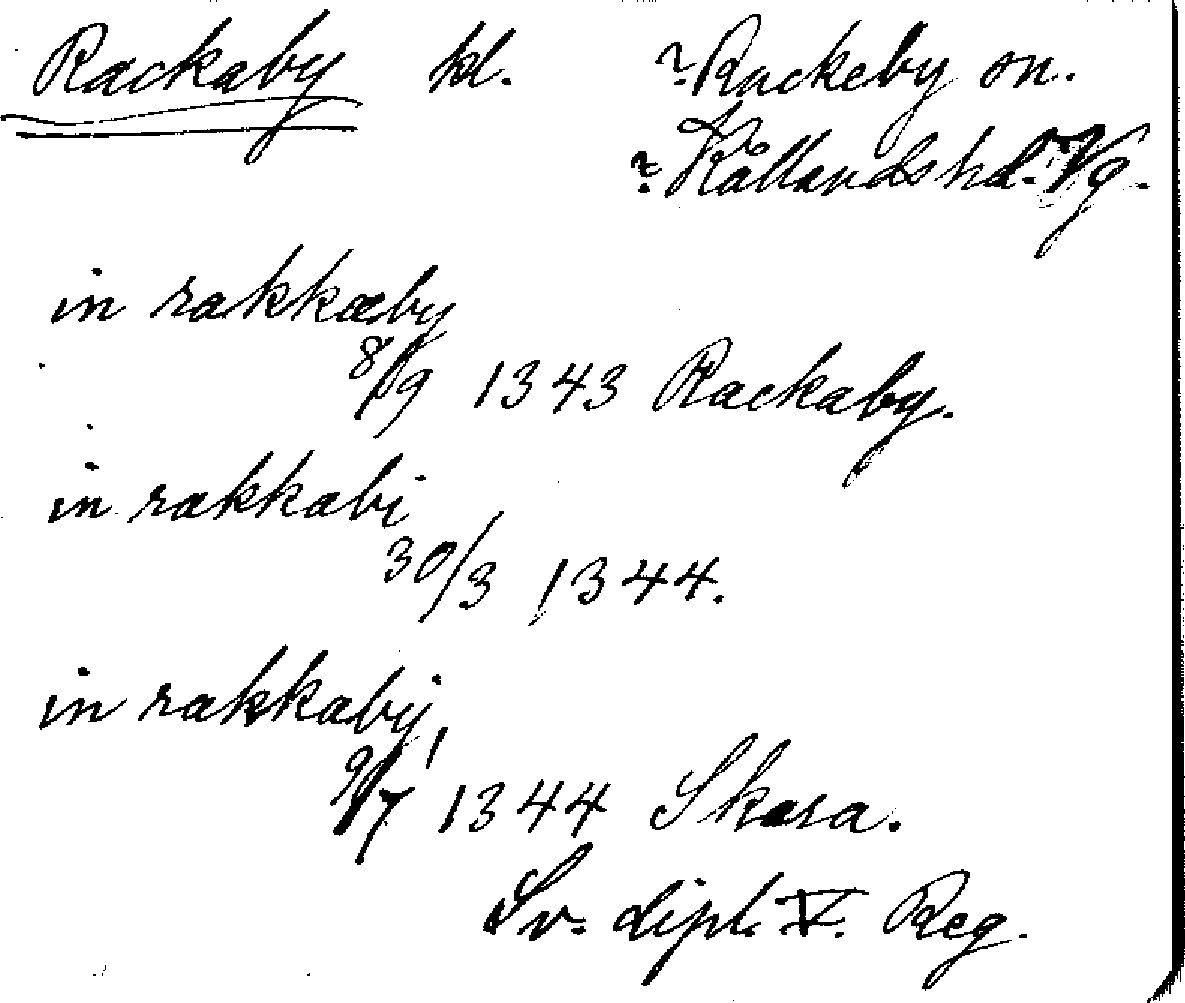 Rackaby kl. ?Rackeby sn.
?Kållands hd. Vg.
in rakkæby
8/9 1343 Rackaby.
in rakkabi
30/3 1344.
in rakkabÿ,
9/7 1344 Skara.
Sv. dipl. V. Reg.